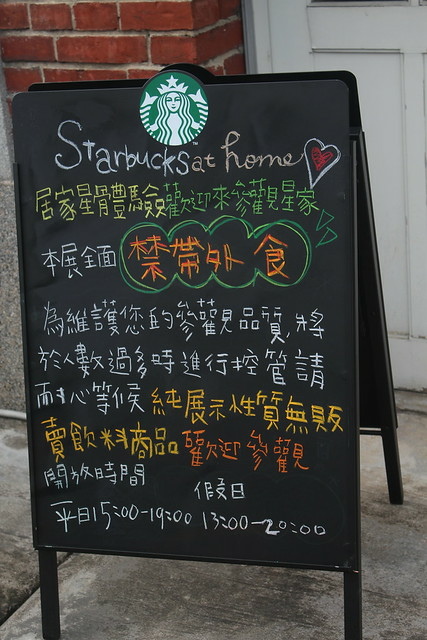 Starbucks at home
居家星體驗歡迎來參觀星家
本展全面 禁帶外食
為維護您的參觀品質,將
於人數過多時進行控管請
耐心等候 純展示性質無販
賣飲料商品 歡迎參觀
開放時間
假日
平日15:00-19:00 13:00-20:00